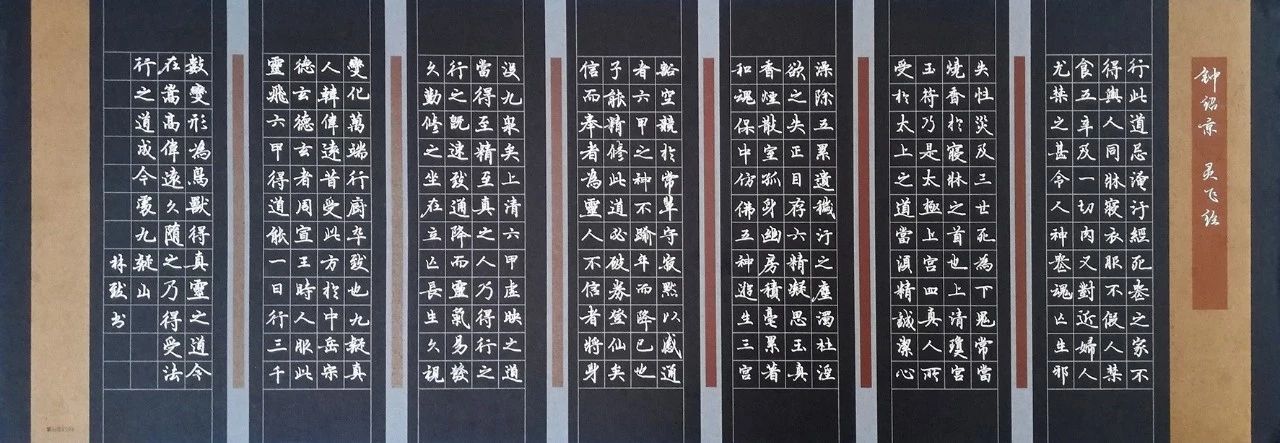 钟绍京 灵飞经
行此道忌淹汙經死喪之家不
得與人同牀寢衣服不假人禁
食五辛及一切肉又對近婦人
尤禁之甚令人神喪魂亡生邪
失性災及三世死為下鬼常當
燒香於寢牀之首也上清瓊宮
玉符乃是太極上宮四真人所
受於太上之道當湏精誠潔心
澡除五累遺穢汙之塵濁杜淫
欲之失正目存六精凝思玉真
香煙散室孤身幽房積毫累著
和魂保中仿佛五神遊生三宮
豁空競於常輩守寂默以感道
者六甲之神不踰年而降已也
子能精修此道必破券登仙矣
信而奉者為靈人不信者將身
没九泉矣上清六甲虛映之道
當得至精至真之人乃得行之
行之既速致通降而靈氣易發
久勤修之坐在立亡長生久視
變化萬端行廚卒致也九疑真
人韓偉遠昔受此方於中岳宗
德玄德玄者周宣王時人服此
靈飛六甲得道能一日行三千
數變形為鳥獸得真靈之道今
在嵩高偉遠久隨之乃得受法
行之道成今處九疑山
林致书